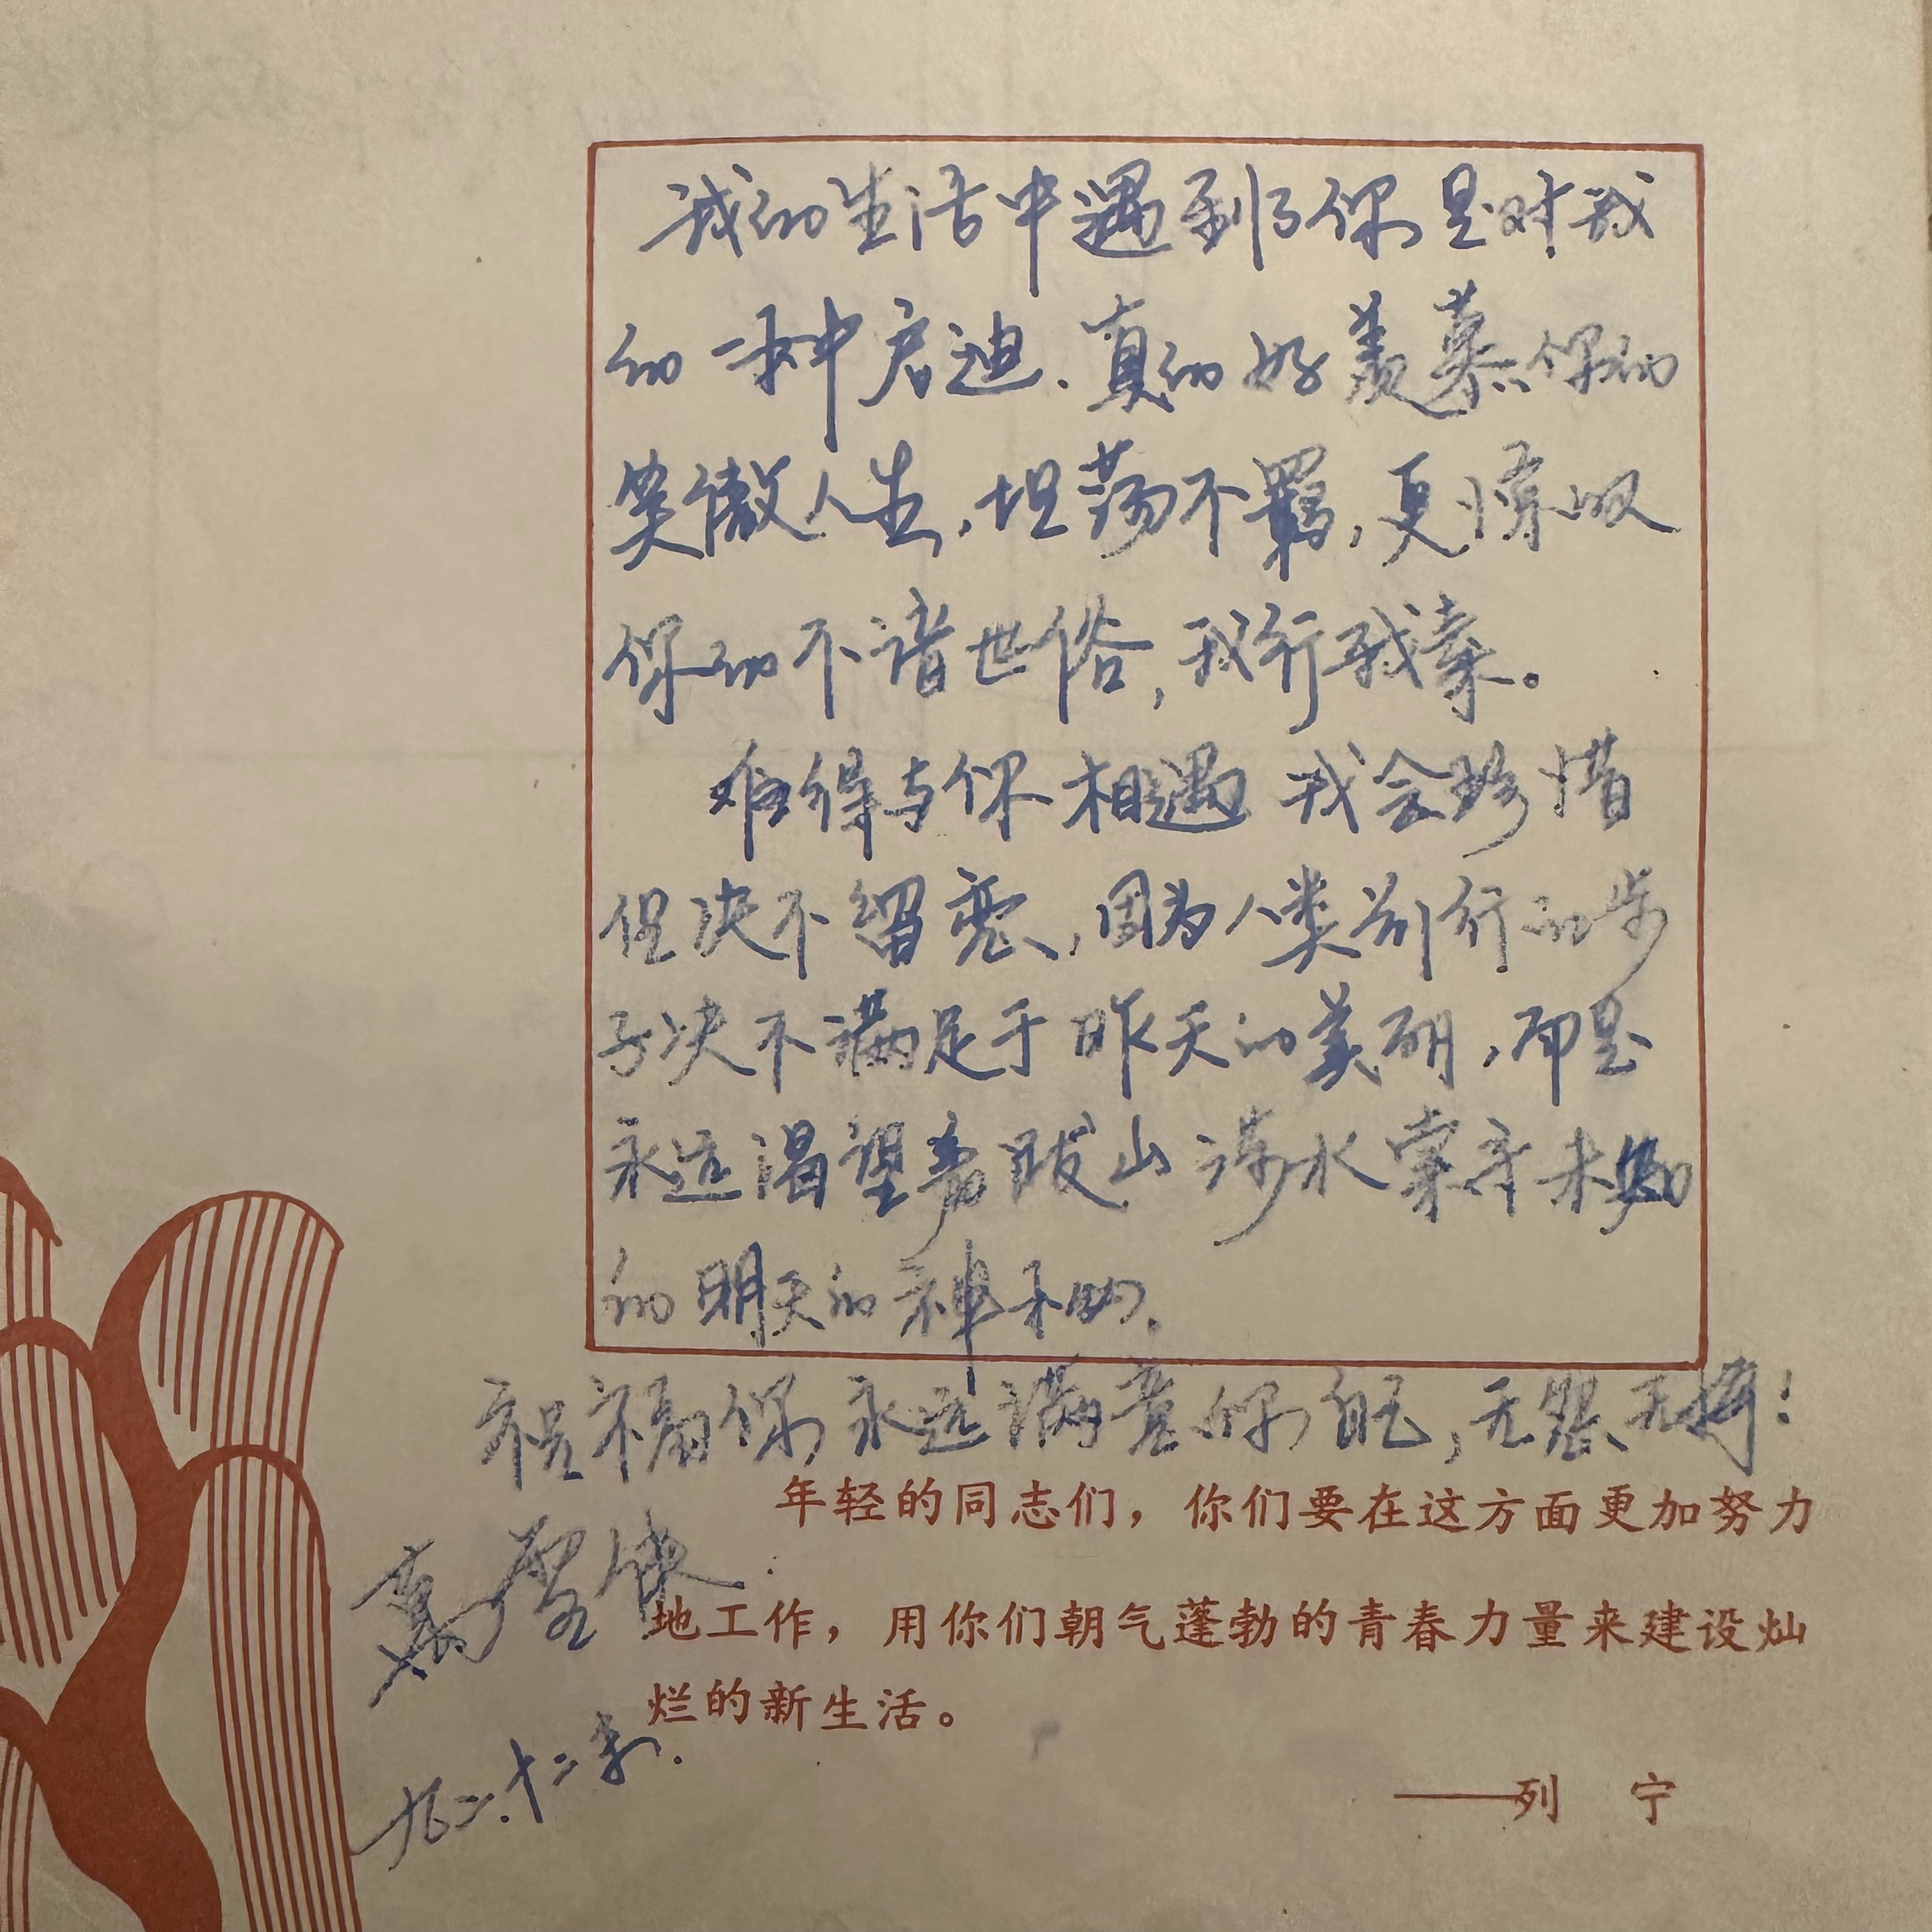 我的生活中遇到了你是对我
的一种启迪.真的好羡慕你的
笑傲人生,坦荡不羁,更惊叹
你的不谙世俗,我行我素。
难得与你相遇 我会珍惜
但决不留恋,因为人类前行的步
子决不满足于昨天的美丽,而是
永远渴望着跋山涉水索寻未知
的明天的神秘.
祝福你永远满意你自己,无怨无悔!
年轻的同志们，你们要在这方面更加努力
地工作，用你们朝气蓬勃的青春力量来建设灿
烂的新生活。
——列 宁
九二.十二.